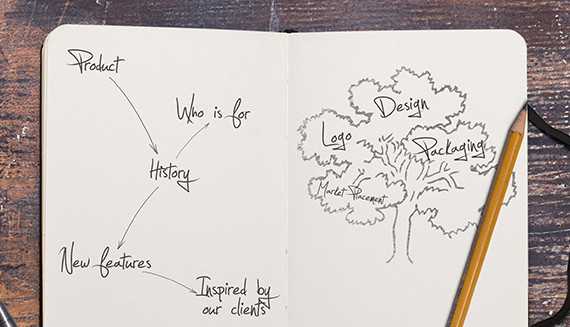 Product
Who is for
History
New features
Inspired by
our clients
Design
Logo
Packaging
Market Placement